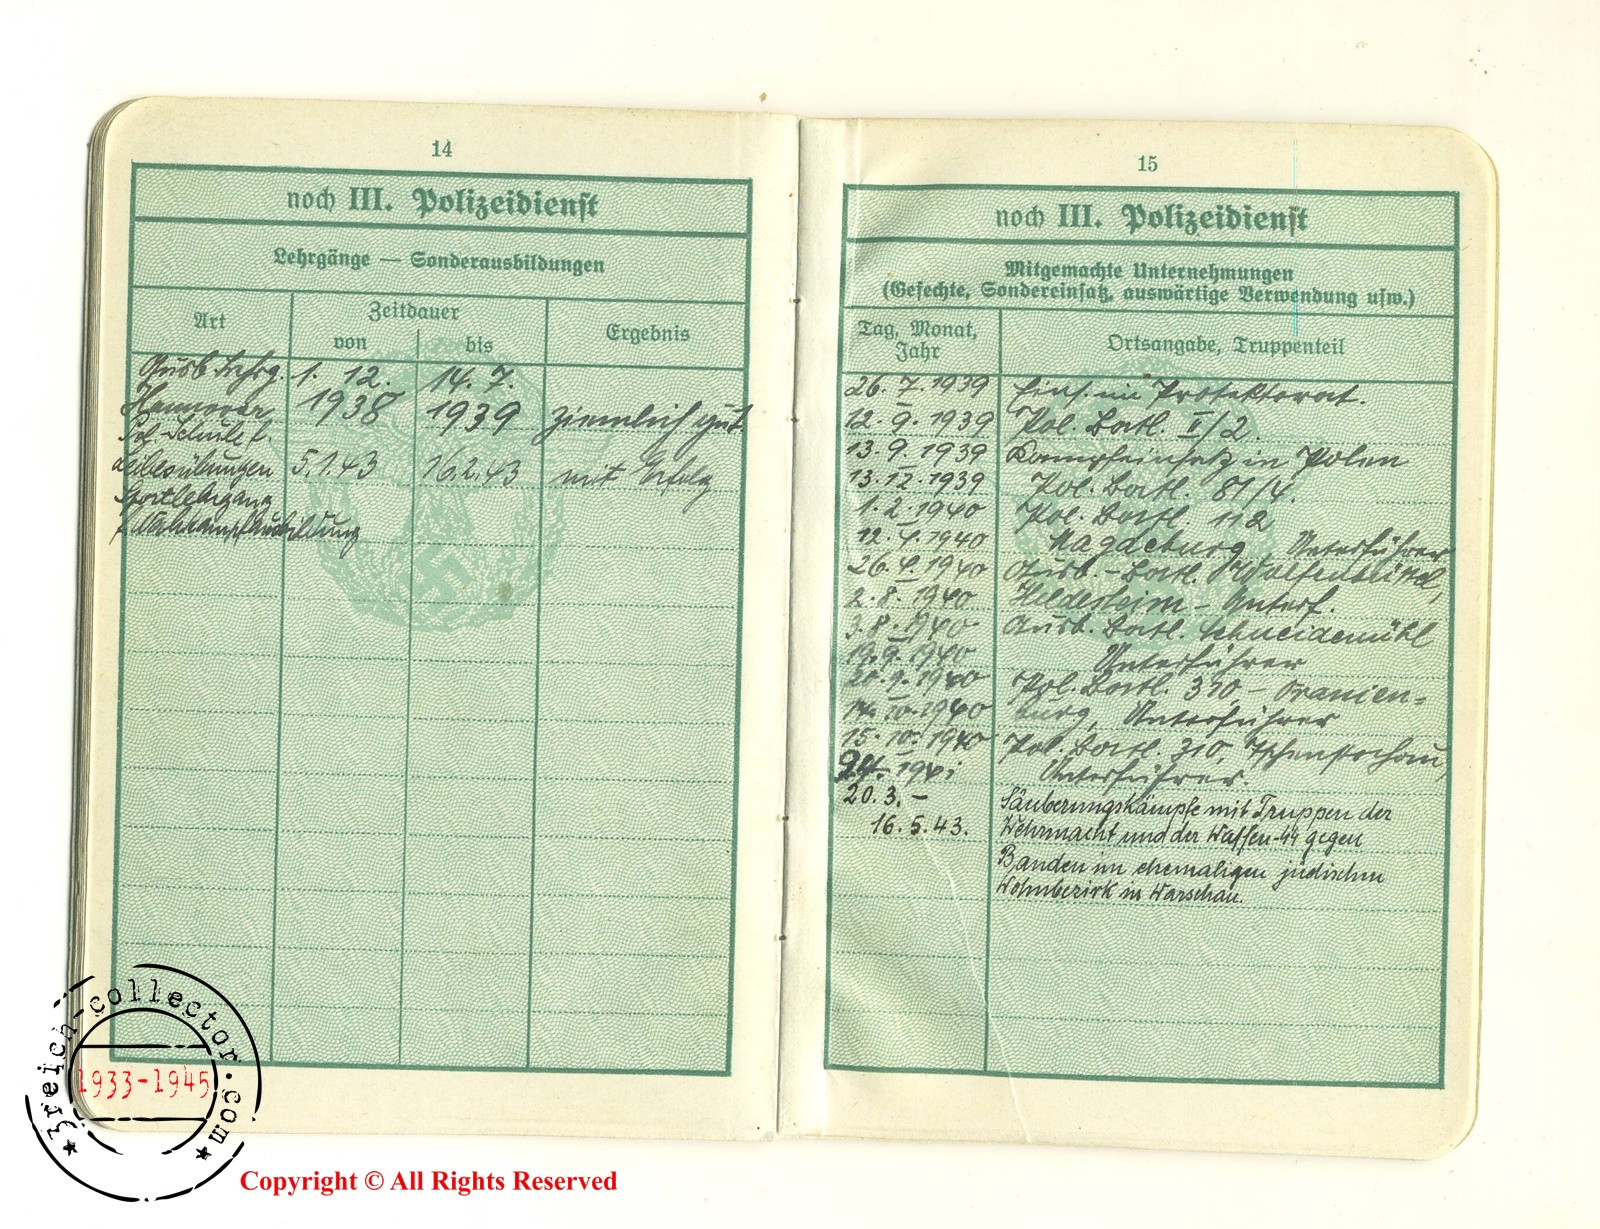 14
noch III. Polizeidienst
Lehrgänge — Sonderausbildungen
Art
Zeitdauer
von
bis
Ergebnis
Ausb. Lehrg. 1. 12. 14. 7.
Hannover 1938 1939 ziemlich gut.
Pol. Schule f.
Leibesübungen 5.1.43 16.2.43 mit Erfolg
Sportlehrgang
f. Nahkampfausbildung
15
noch III. Polizeidienst
Mitgemachte Unternehmungen
(Gefechte, Sondereinsatz, auswärtige Verwendung usw.)
Tag, Monat,
Jahr
Ortsangabe, Truppenteil
26. 7. 1939 Eins. im Protektorat.
12. 9. 1939 Pol. Batl. II/2.
13. 9. 1939 Kampfeinsatz in Polen
13. 12. 1939 Pol. Batl. 81/4.
1. 2. 1940 Pol. Batl. 112
12. 4. 1940 Magdeburg Unterführer
26. 4. 1940 Ausb.-Batl. Wolfenbüttel,
2. 8. 1940 Hildesheim – Unterf.
3. 8. 1940 Ausb. Batl. Schneidemühl
19. 9. 1940 Unterführer
20. 9. 1940 Pol. Batl. 310 – Oranien=
14. 10. 1940 burg, Unterführer
15. 10. 1940 Pol. Batl. 310, Tschenstochau,
1941 Unterführer.
20. 3. – Säuberungskämpfe mit Truppen der
16. 5. 43. Wehrmacht und der Waffen-SS gegen
Banden im ehemaligen jüdischen
Wohnbezirk in Warschau.
3reich-collector.com
1933-1945
Copyright © All Rights Reserved